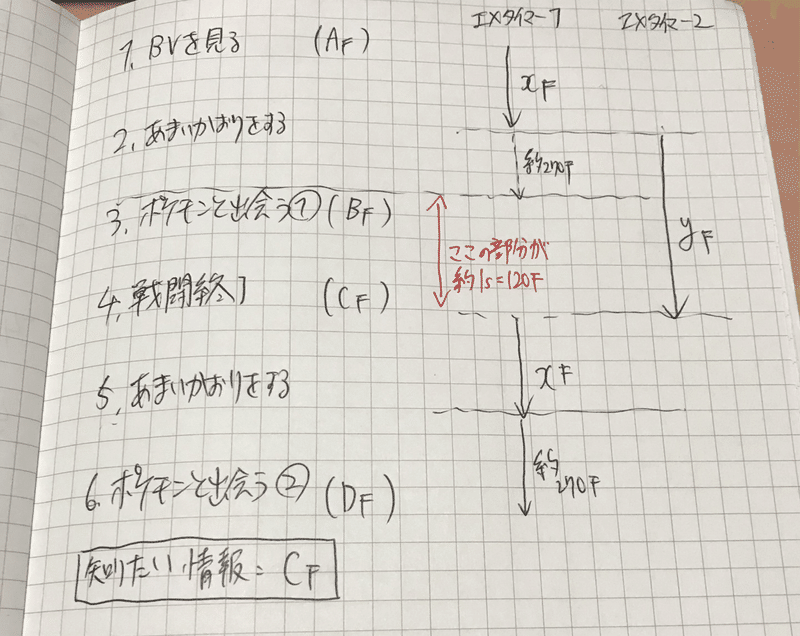 エメタイマー1
エメタイマー2
1, BVを見る (AF)
xF
2, あまいかおりをする
約270F
3, ポケモンと出会う① (BF)
yF
ここの部分が
約1s=120F
4, 戦闘終了 (CF)
xF
5, あまいかおりをする
約
270F
6, ポケモンと出会う② (DF)
知りたい情報 = CF